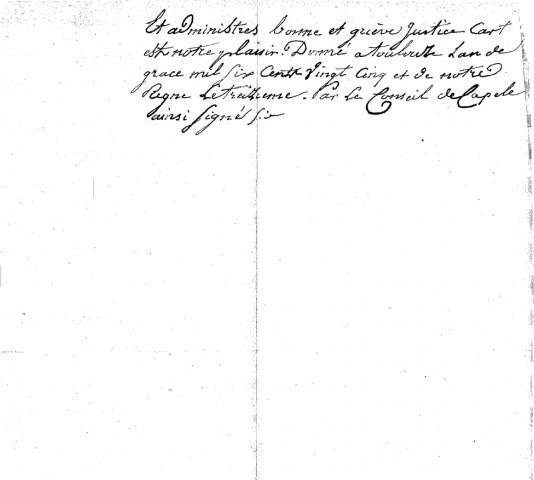 Et administrés bonne et griève Justice Cart
est notre plaisir. Donné a toulouse Lan de
grace mil six Cents vingt Cinq et de notre
Regne Le treiziéme. Par Le Conseil de Capele
ainsi signé